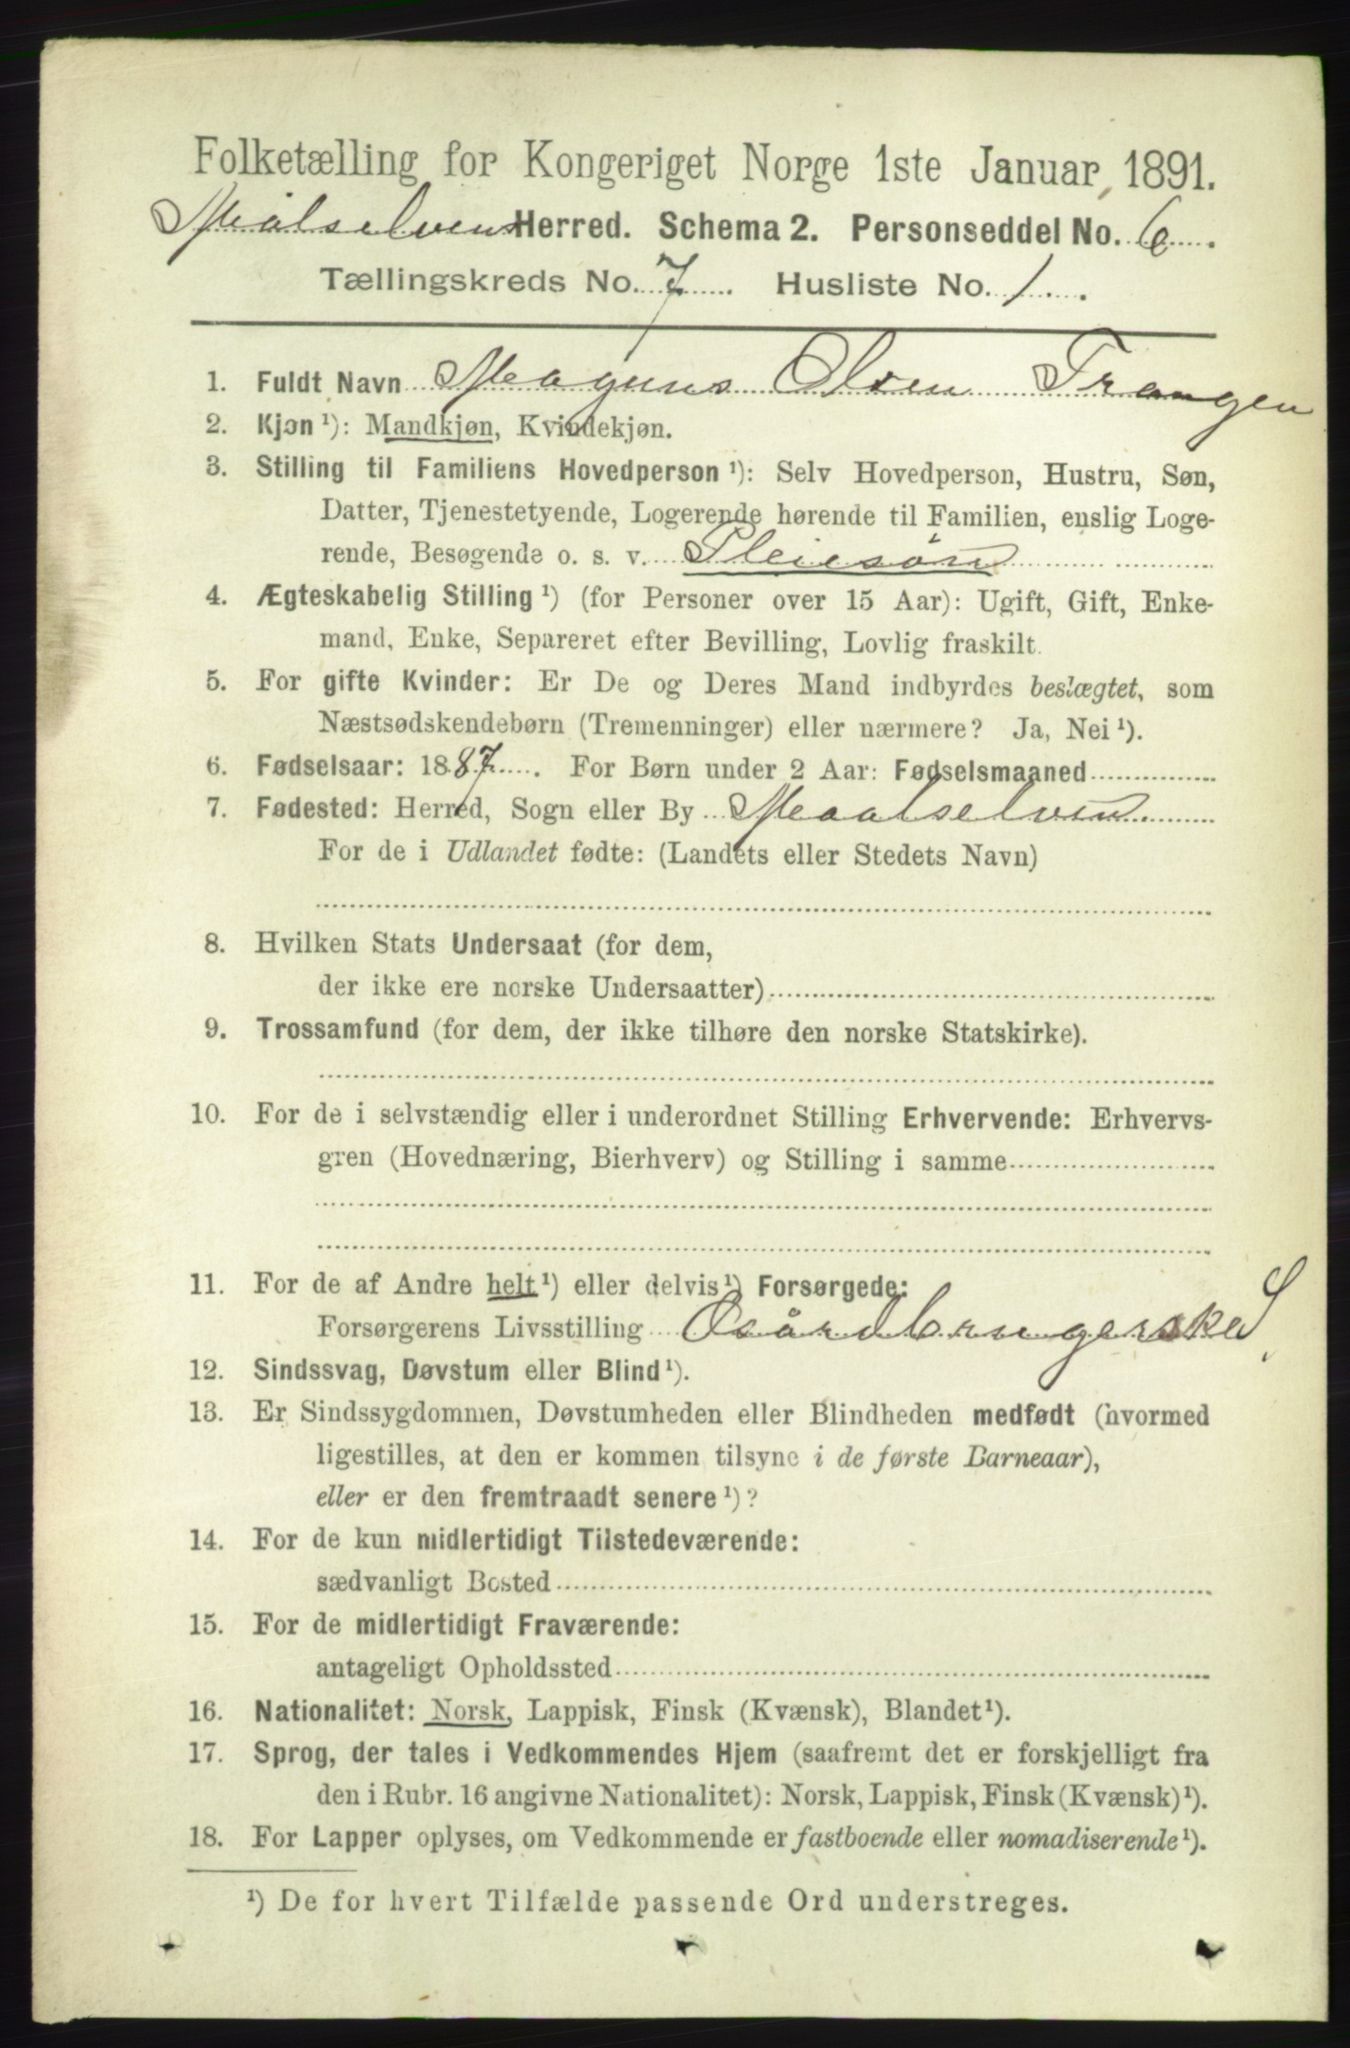 Folketælling for Kongeriget Norge 1ste Januar 1891.
Målselvens Herred. Schema 2. Personseddel No. 6
Tællingskreds No. 7 Husliste No. 1
1. Fuldt Navn Magnus Olsen Trangen
2. Kjøn ¹): Mandkjøn, Kvindekjøn.
3. Stilling til Familiens Hovedperson ¹): Selv Hovedperson, Hustru, Søn,
Datter, Tjenestetyende, Logerende hørende til Familien, enslig Loge-
rende, Besøgende o. s. v. Pleiesøn
4. Ægteskabelig Stilling ¹) (for Personer over 15 Aar): Ugift, Gift, Enke-
mand, Enke, Separeret efter Bevilling, Lovlig fraskilt.
5. For gifte Kvinder: Er De og Deres Mand indbyrdes beslægtet, som
Næstsødskendebørn (Tremenninger) eller nærmere? Ja, Nei ¹).
6. Fødselsaar: 1887. For Børn under 2 Aar: Fødselsmaaned
7. Fødested: Herred, Sogn eller By Maalselven
For de i Udlandet fødte: (Landets eller Stedets Navn)
8. Hvilken Stats Undersaat (for dem,
der ikke ere norske Undersaatter)
9. Trossamfund (for dem, der ikke tilhøre den norske Statskirke).
10. For de i selvstændig eller i underordnet Stilling Erhvervende: Erhvervs-
gren (Hovednæring, Bierhverv) og Stilling i samme
11. For de af Andre helt ¹) eller delvis ¹) Forsørgede:
Forsørgerens Livsstilling
12. Sindssvag, Døvstum eller Blind ¹).
13. Er Sindssygdommen, Døvstumheden eller Blindheden medfødt (hvormed
ligestilles, at den er kommen tilsyne i de første Barneaar),
eller er den fremtraadt senere ¹)?
14. For de kun midlertidigt Tilstedeværende:
sædvanligt Bosted
15. For de midlertidigt Fraværende:
antageligt Opholdssted
16. Nationalitet: Norsk, Lappisk, Finsk (Kvænsk), Blandet ¹).
17. Sprog, der tales i Vedkommendes Hjem (saafremt det er forskjelligt fra
den i Rubr. 16 angivne Nationalitet): Norsk, Lappisk, Finsk (Kvænsk) ¹).
18. For Lapper oplyses, om Vedkommende er fastboende eller nomadiserende ¹).
¹) De for hvert Tilfælde passende Ord understreges.